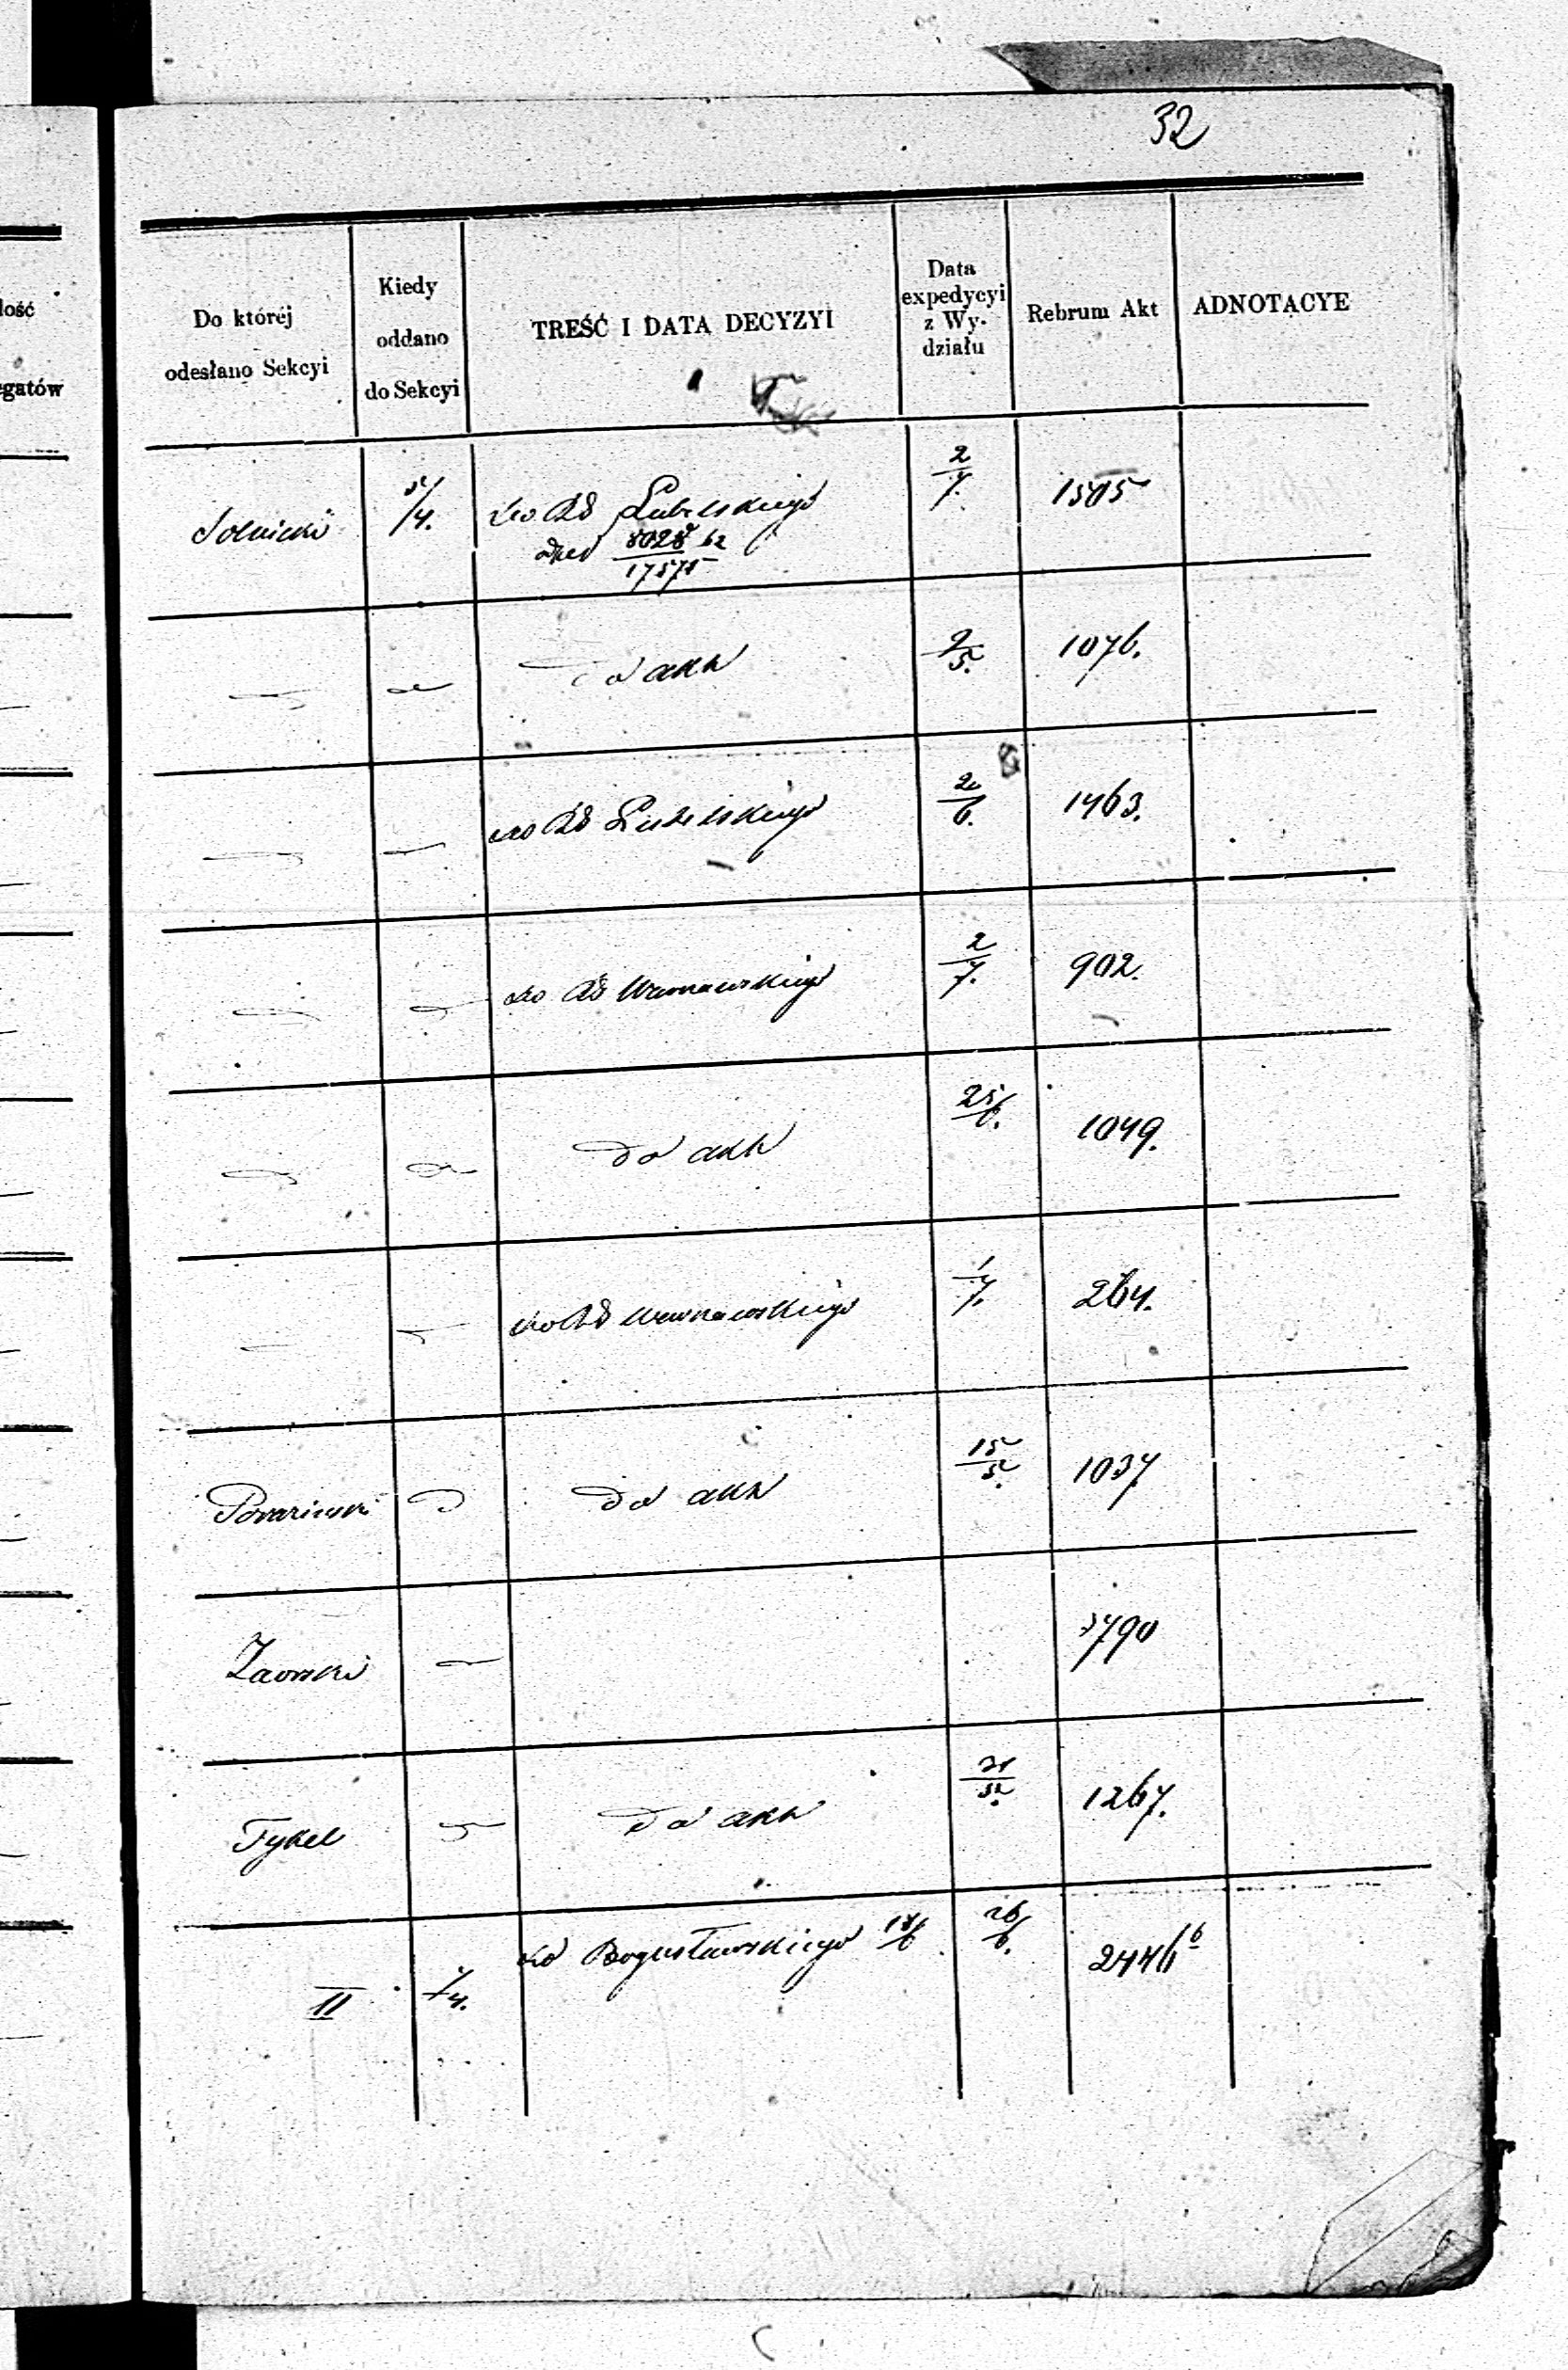 32
lość
egatów
Do której
odesłano Sekcyi
Kiedy
oddano
do Sekcyi
TREŚĆ I DATA DECYZYI
Data
expedycyi
z Wy-
działu
Rebrum Akt
ADNOTACYE
Solnicki 5/4. do RG Lubelskiego 2/7. 1515
do akt 9/5. 1076.
do RG Lubelskiego 2/6. 1463.
do RG Warszawskiego 2/7. 902.
do akt 25/6. 1049.
do RG Warszawskiego 1/7. 264.
do akt 15/5. 1037
Zaorski 3790
Tykel do akt 31/5. 1267.
II 7/4. do Bogusławskiego 18/6 26/6. 2446 b